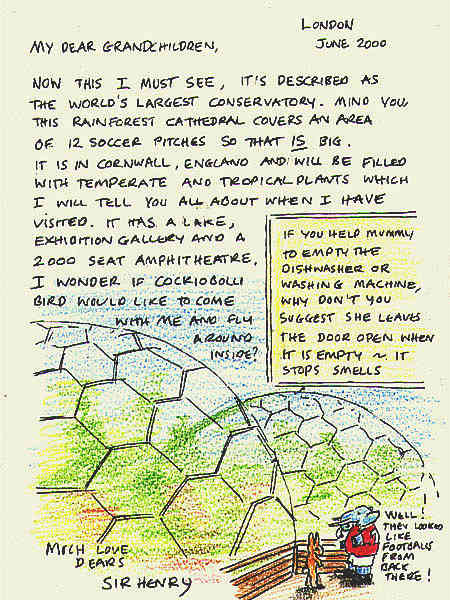 LONDON
JUNE 2000
MY DEAR GRANDCHILDREN,
NOW THIS I MUST SEE, IT'S DESCRIBED AS
THE WORLD'S LARGEST CONSERVATORY. MIND YOU,
THIS RAINFOREST CATHEDRAL COVERS AN AREA
OF 12 SOCCER PITCHES SO THAT IS BIG.
IT IS IN CORNWALL, ENGLAND AND WILL BE FILLED
WITH TEMPERATE AND TROPICAL PLANTS WHICH
I WILL TELL YOU ALL ABOUT WHEN I HAVE
VISITED. IT HAS A LAKE,
EXHIDITION GALLERY AND A
2000 SEAT AMPHITHEATRE,
I WONDER IF COCKIOBOLLI
BIRD WOULD LIKE TO COME
WITH ME AND FLY
AROUND
INSIDE?
IF YOU HELP MUMMY
TO EMPTY THE
DISHWASHER OR
WASHING MACHINE,
WHY DON'T YOU
SUGGEST SHE LEAVES
THE DOOR OPEN WHEN
IT IS EMPTY ~ IT
STOPS SMELLS
WELL!
THEY LOOKED
LIKE
FOOTBALLS
FROM
BACK
THERE!
MUCH LOVE
DEARS
SIR HENRY